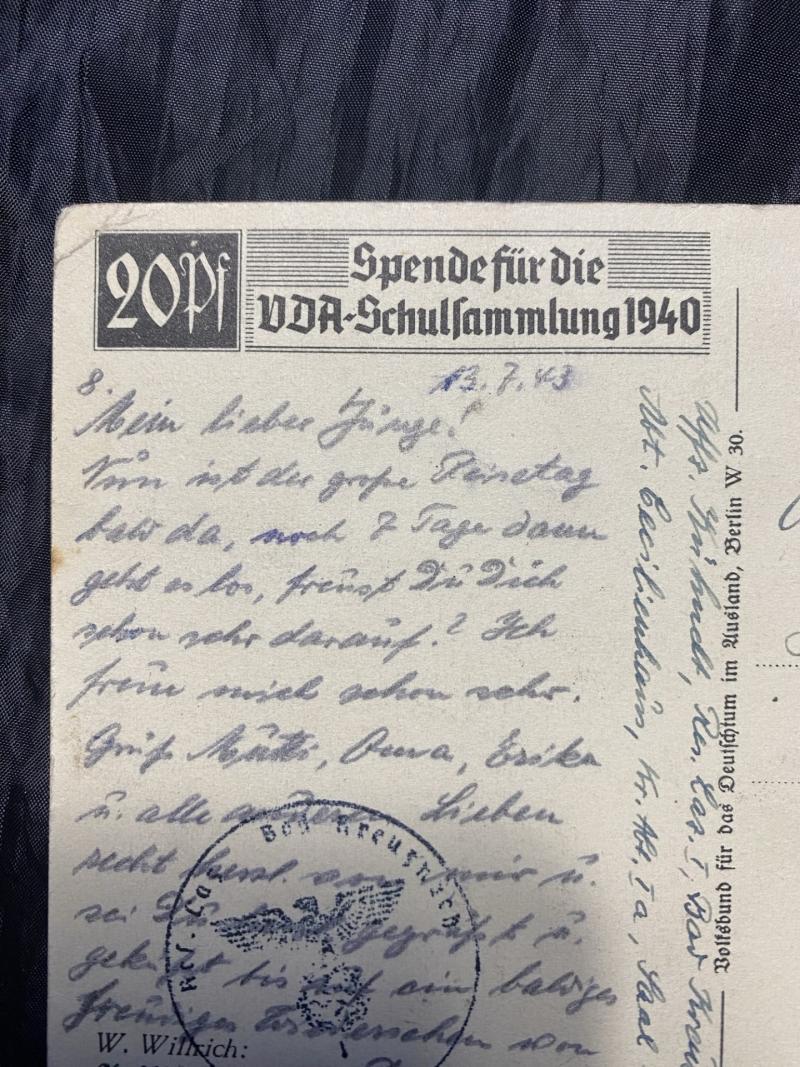 20Pf
Spende für die
VDA-Schulsammlung 1940
8.
13.7.43
Mein lieber Junge!
Nun ist der große Reisetag
bald da, noch 7 Tage dann
geht es los, freust Du Dich
schon sehr darauf? Ich
freue mich schon sehr.
Grüß Mutti, Oma, Erika
u. alle anderen Lieben
recht herzl. von mir u.
sei Du gegrüßt u.
geküßt bis auf ein baldiges
freudiges Wiedersehen von
Res. Laz. Bad Kreuznach
W. Willrich:
Uffz. Res. Laz. I, Bad
Abt. Cecilienhaus, Ia, Saal
Volksbund für das Deutschtum im Ausland, Berlin W 30.